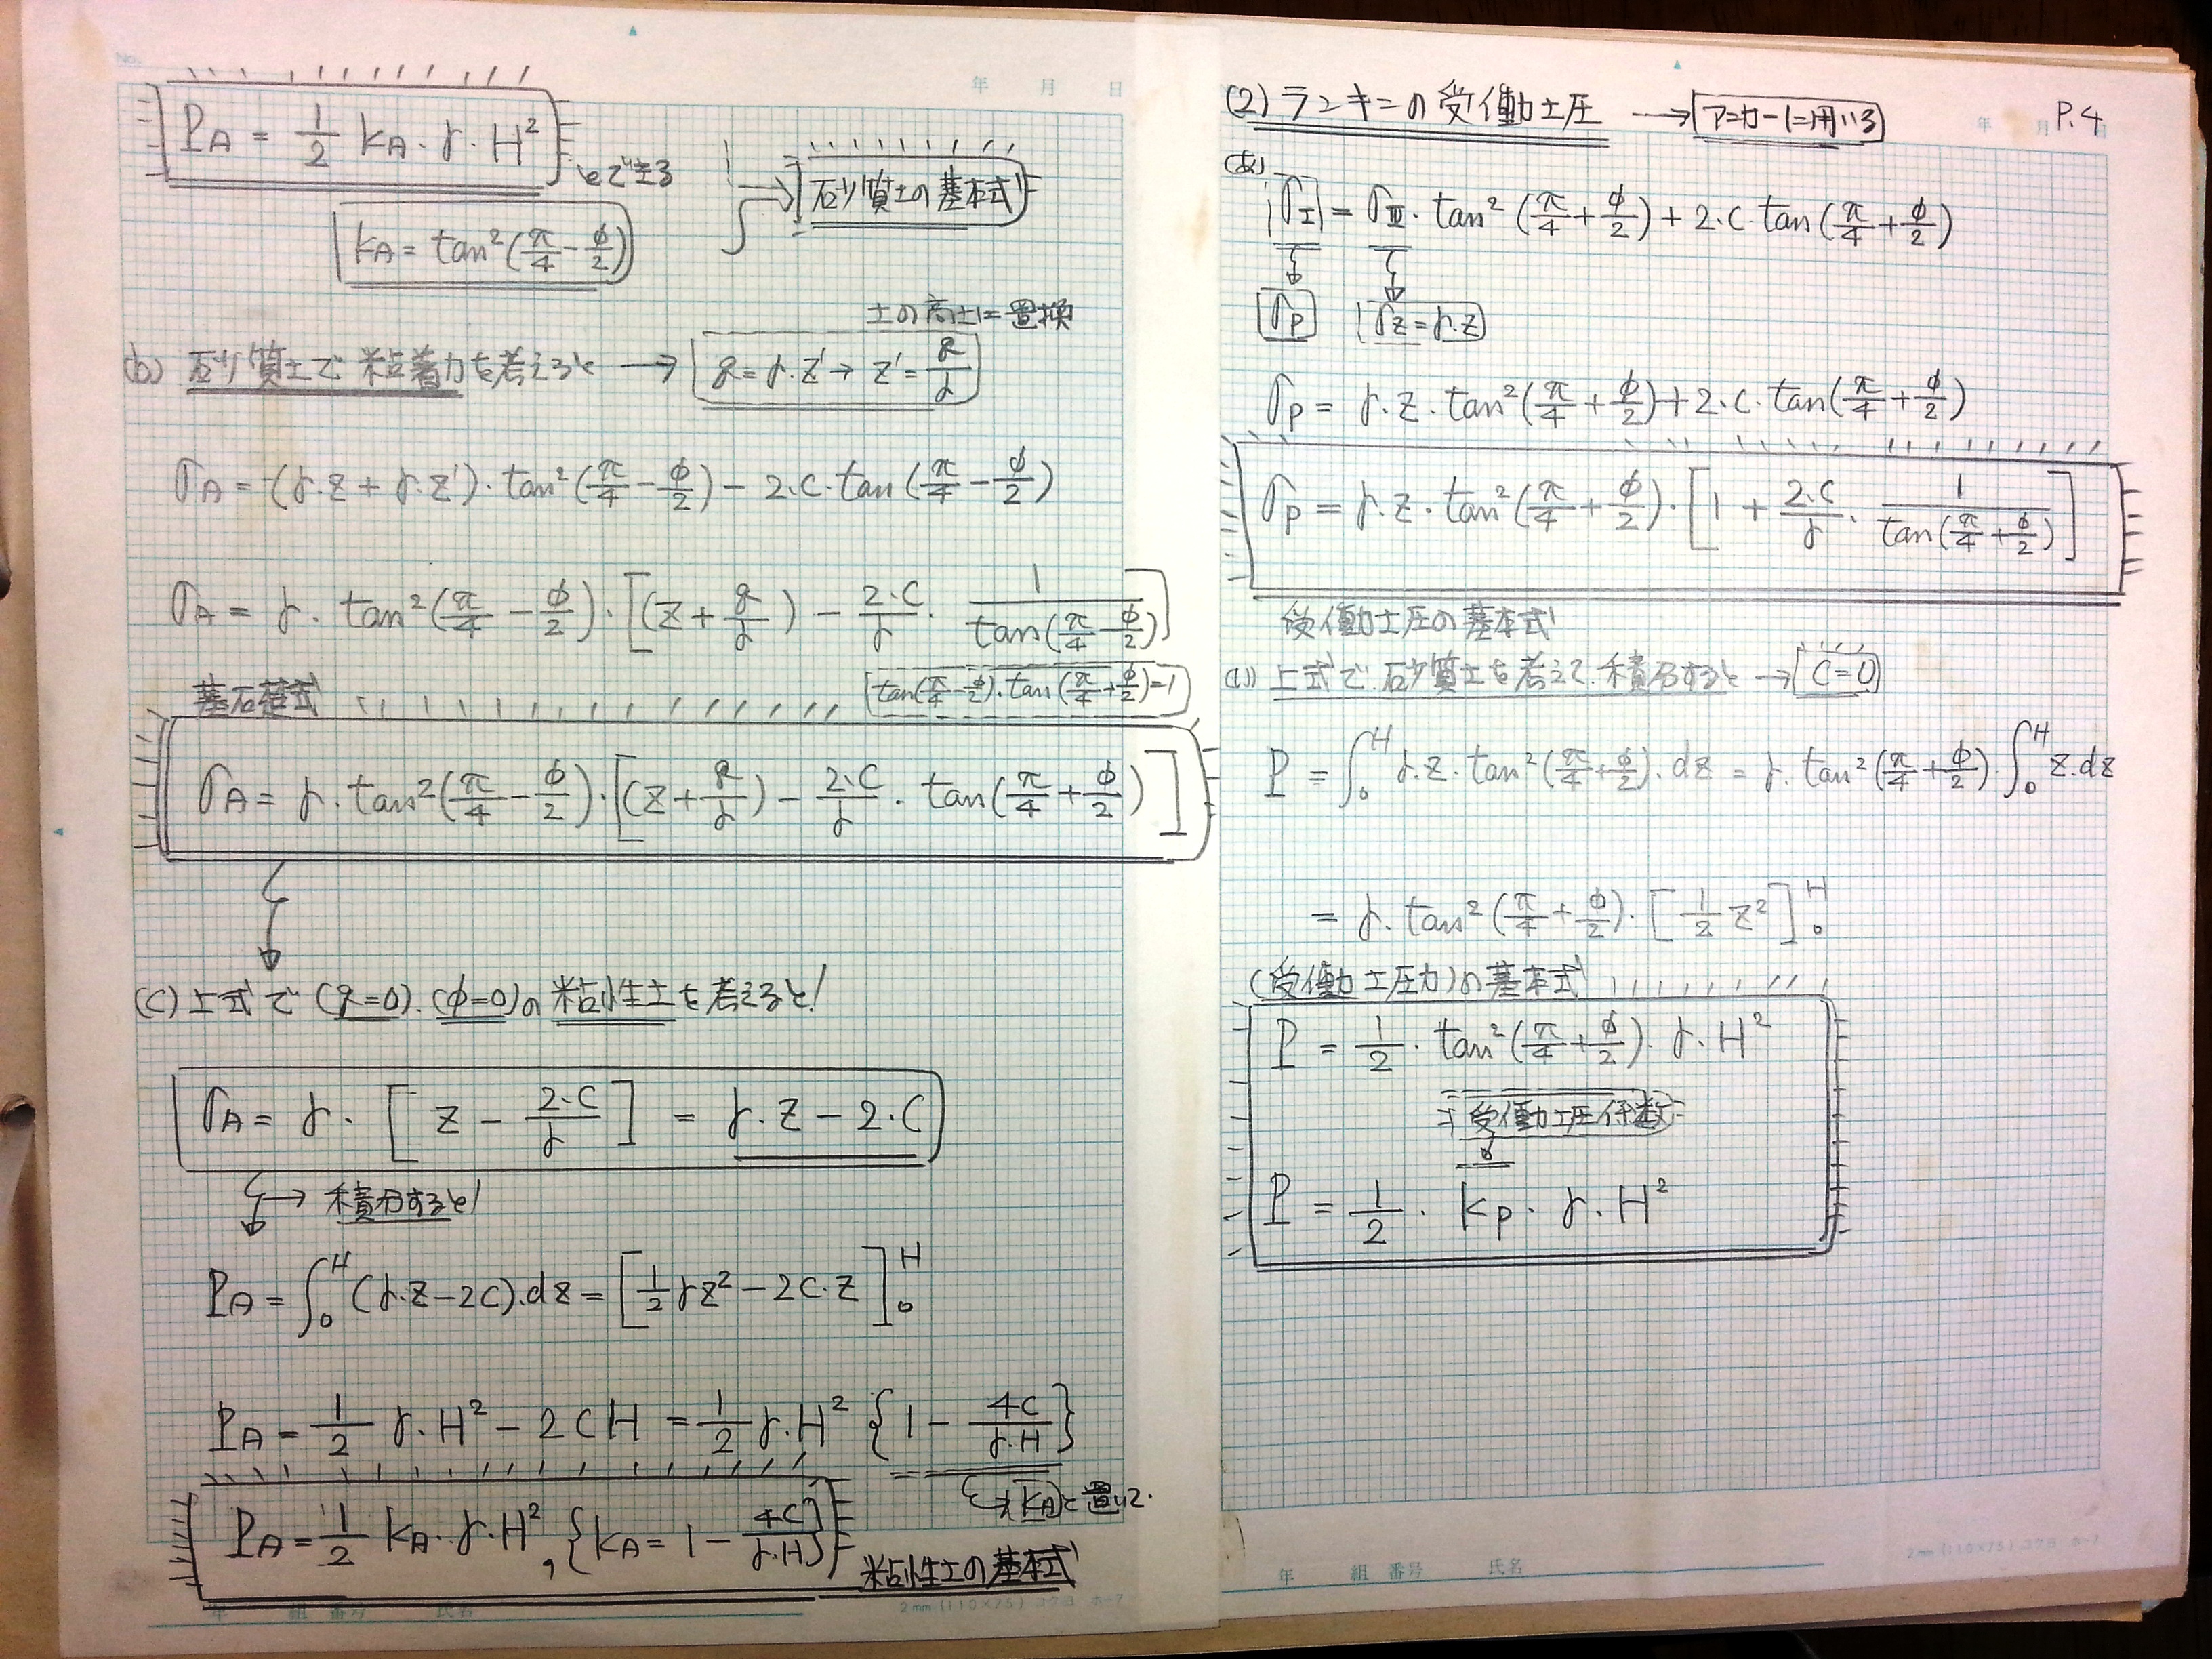 No.
年 月 日
P_A = 1/2 k_A・γ・H²
とできる
砂質土の基本式
k_A = tan²(π/4 − φ/2)
土の高さに置換
(b) 砂質土で粘着力を考えると → q = γ・Z' → Z' = q/γ
σ_A = (γ・Z + γ・Z')・tan²(π/4 − φ/2) − 2・C・tan(π/4 − φ/2)
σ_A = γ・tan²(π/4 − φ/2)・[(Z + q/γ) − 2・C/γ・1/tan(π/4 − φ/2)]
基礎式
tan(π/4 − φ/2)・tan(π/4 + φ/2) = 1
σ_A = γ・tan²(π/4 − φ/2)・[(Z + q/γ) − 2・C/γ・tan(π/4 + φ/2)]
(c) 上式で(q=0).(φ=0)の粘性土を考えると!
σ_A = γ・[Z − 2・C/γ] = γ・Z − 2・C
→ 積分すると!
P_A = ∫₀ᴴ (γ・Z − 2C)・dZ = [1/2 γZ² − 2C・Z]₀ᴴ
P_A = 1/2 γ・H² − 2CH = 1/2 γ・H² {1 − 4C/γ・H}
→ k_A と置いて.
P_A = 1/2 k_A・γ・H², {k_A = 1 − 4C/γ・H}
粘性土の基本式
年 組 番号 氏名
2mm (110×75) コクヨ ホ-7
(2) ランキンの受働土圧 → アンカーに用いる
P.4
年 月 日
(a)
σ_I = σ_III・tan²(π/4 + φ/2) + 2・C・tan(π/4 + φ/2)
σ_p σ_Z = γ・Z
σ_p = γ・Z・tan²(π/4 + φ/2) + 2・C・tan(π/4 + φ/2)
σ_p = γ・Z・tan²(π/4 + φ/2)・[1 + 2・C/γ・1/tan(π/4 + φ/2)]
受働土圧の基本式
上式で砂質土を考えて積分すると → C = 0
P = ∫₀ᴴ γ・Z・tan²(π/4 + φ/2)・dZ = γ・tan²(π/4 + φ/2)・∫₀ᴴ Z・dZ
= γ・tan²(π/4 + φ/2)・[1/2 Z²]₀ᴴ
(受働土圧力)の基本式
P = 1/2・tan²(π/4 + φ/2)・γ・H²
受働土圧係数
P = 1/2・k_p・γ・H²
年 組 番号 氏名
2mm (110×75) コクヨ ホ-7